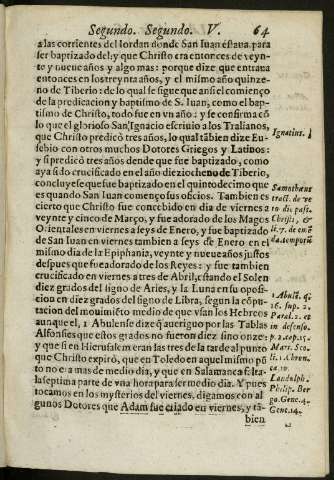 Segundo. Segundo. V. 64
a las corrientes del Iordan donde San Iuan estaua para
ser baptizado del: y que Christo era entonces de veyn-
te y nueue años y algo mas: porque dize que entraua
entonces en los treynta años, y el mismo año quinze-
no de Tiberio: de lo qual se sigue que ansi el comienço
de la predicacion y baptismo de S. Iuan, como el bap-
tismo de Christo, todo fue en vn año: y se confirma cõ
lo que el glorioso San Ignacio escriuio a los Tralianos,
Ignatius.
que Christo predicò tres años, lo qual tãbien dize Eu-
sebio con otros muchos Dotores Griegos y Latinos:
y si predicò tres años dende que fue baptizado, como
aya sido crucificado en el año deziocheno de Tiberio,
concluyese que fue baptizado en el quintodecimo que
es quando San Iuan començo su officio. Tambien es
cierto que Christo fue concebido en dia de viernes a
veynte y cinco de Março, y fue adorado de los Magos
Orientales en viernes a seys de Enero, y fue baptizado
de San Iuan en viernes tambien a seys de Enero en el
mismo dia de la Epiphania, veynte y nueue años justos
despues que fue adorado de los Reyes: y fue tambien
crucificado en viernes a tres de Abril, estando el Sol en
diez grados del signo de Aries, y la Luna en su oposi-
cion en diez grados del signo de Libra, segun la cõpu-
tacion del mouimiẽto medio de que vsan los Hebreos
aunque el, 1 Abulense dize q̃ aueriguò por las Tablas
Alfonsies que estos grados no fueron diez sino onze:
y que si en Hierusalem eran las tres de la tarde al punto
que Christo espirò, que en Toledo en aquel mismo pũ
to no era mas de medio dia, y que en Salamanca falta-
la septima parte de vna hora para ser medio dia. Y pues
tocamos en los mysterios del viernes, digamos con al
gunos Dotores que Adam fue criado en viernes, y tã-
bien
tract. de ve
ro die pass.
Christi, &
li. 7. de emẽ
da. temporũ
1 Abulẽ. q.
26. sup. 2.
Paral. 2. et
in defenso.
p. 2. cap. 15.
Mar. Sco.
li. 1. Chron.
ca. 10.
Landulph.
Philip. Ber
go. Gene. 4.
Gene. 14.